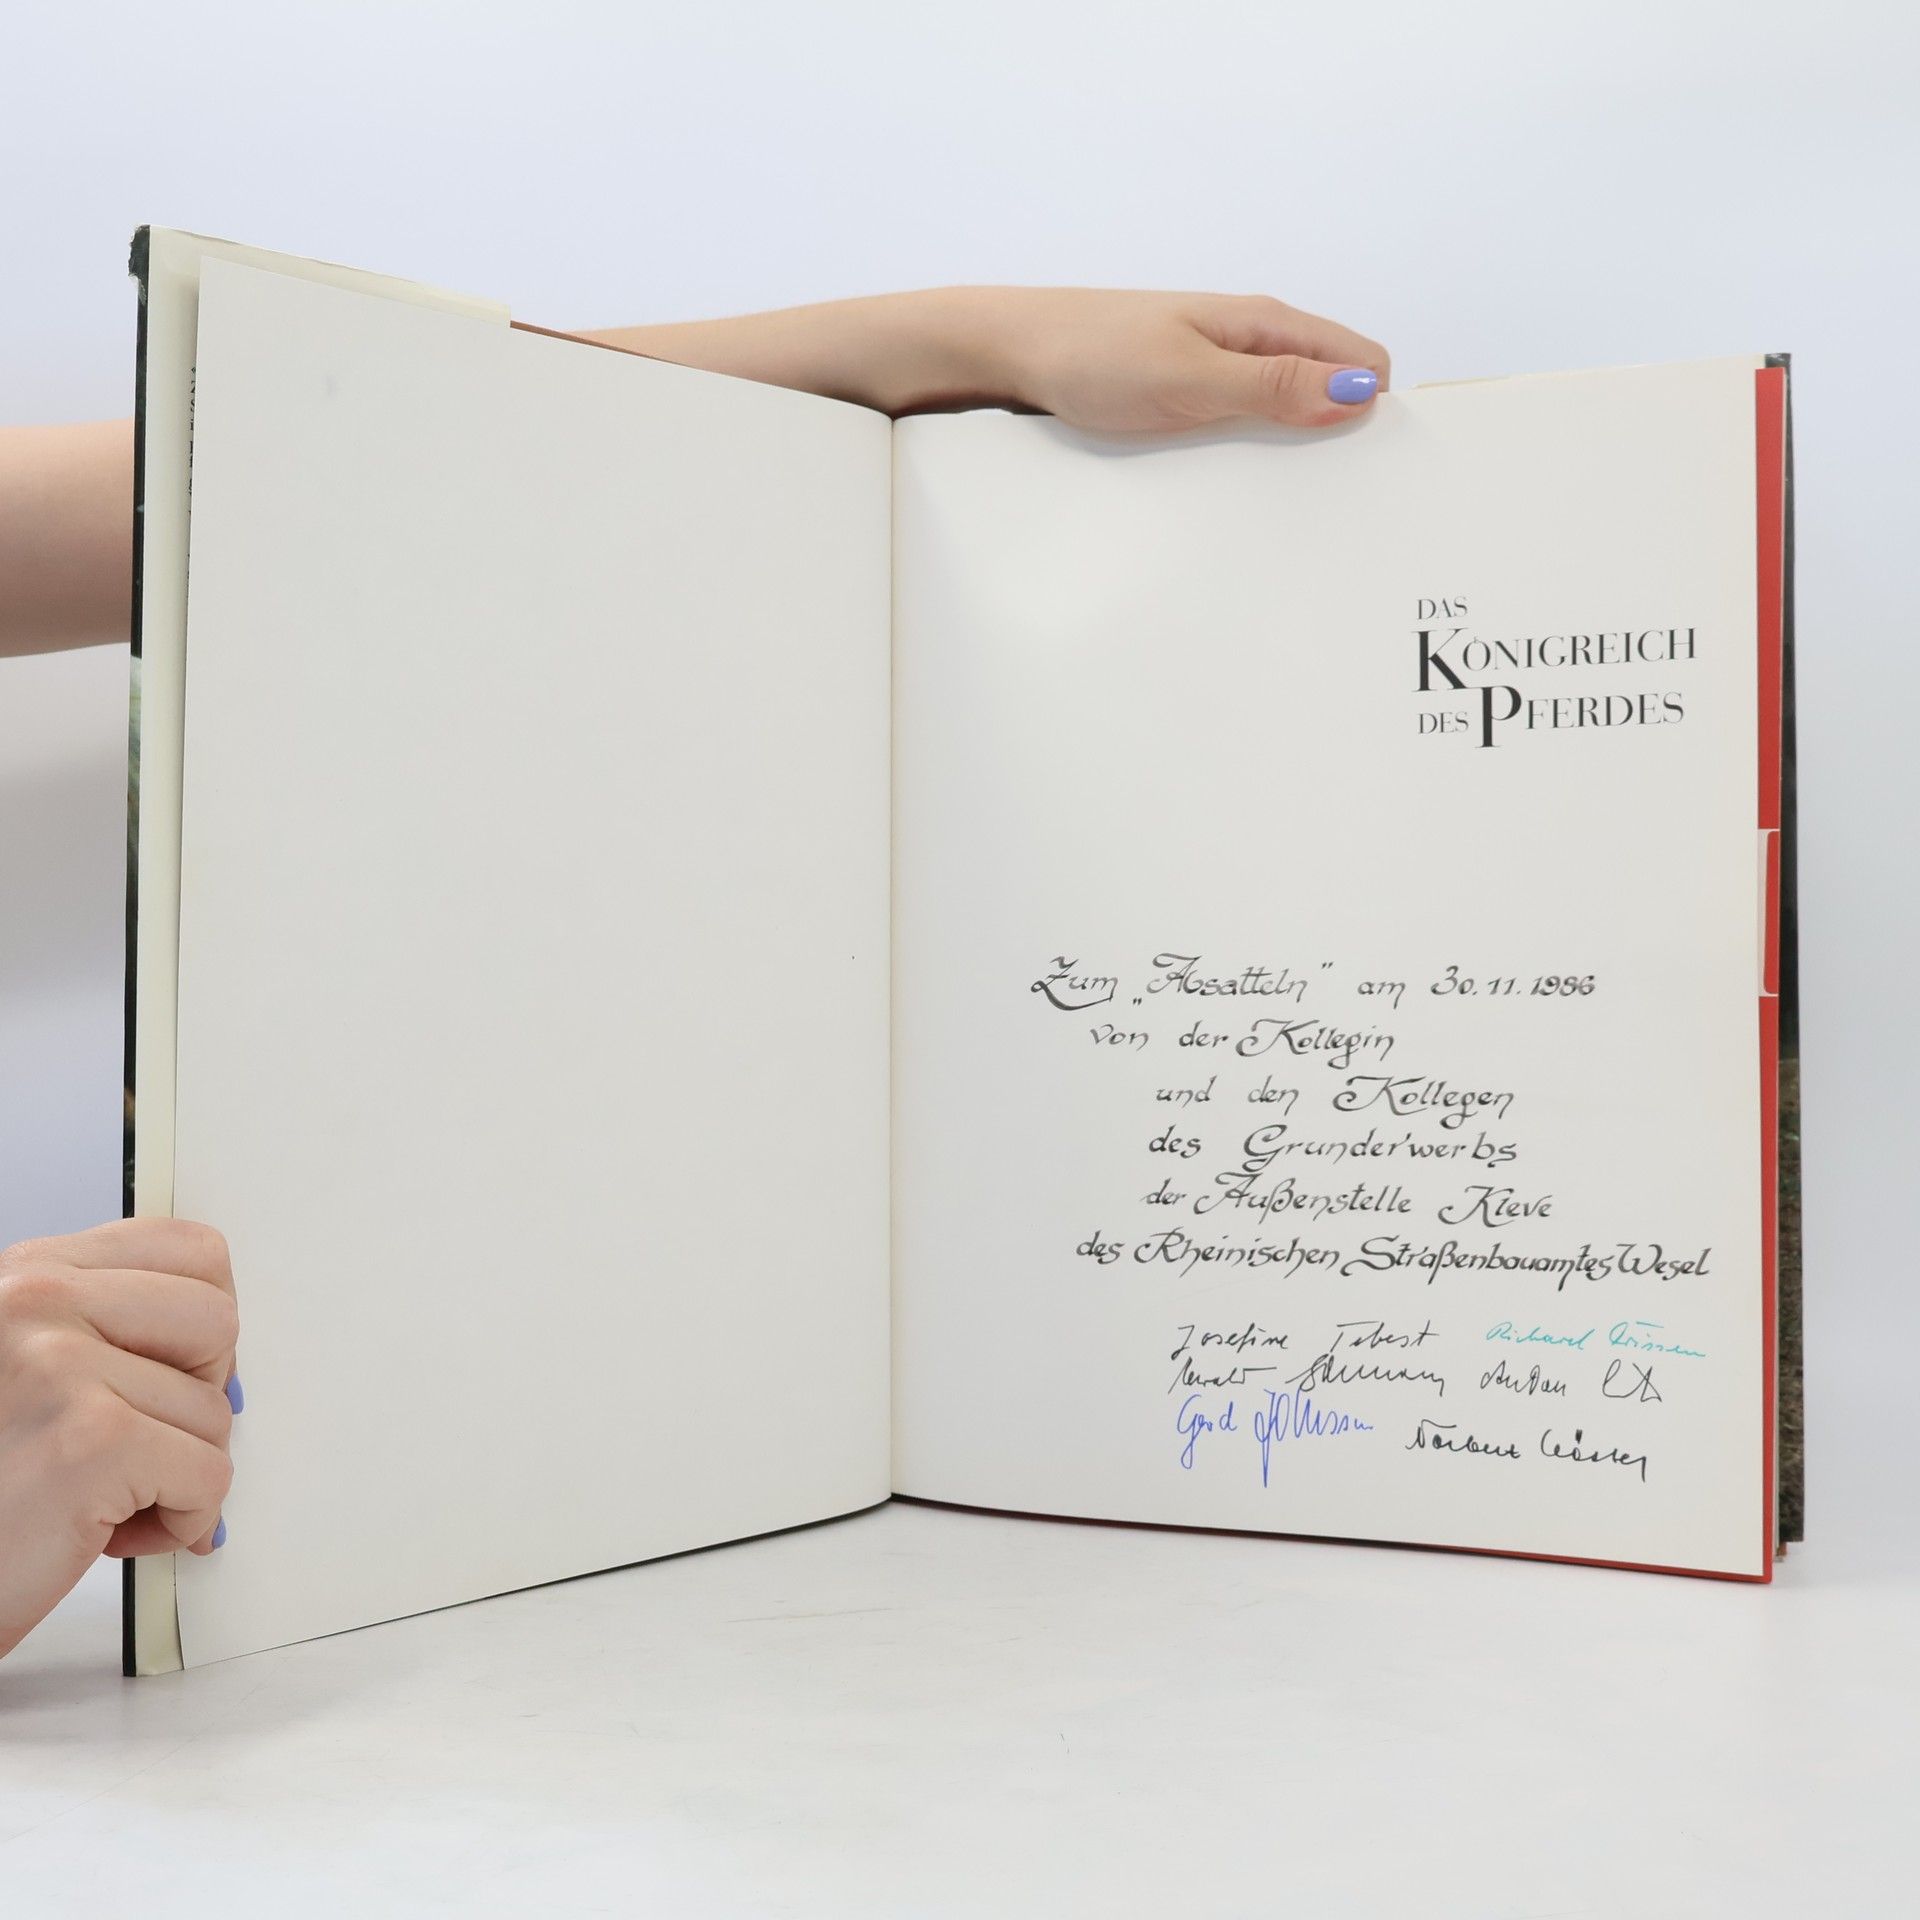 DAS
KÖNIGREICH
DES PFERDES
Zum „Absatteln" am 30.11.1986
von der Kollegin
und den Kollegen
des Grunderwerbs
der Außenstelle Kleve
des Rheinischen Straßenbauamtes Wesel
Josefine Tebest Richard
Anton
Gerd Norbert